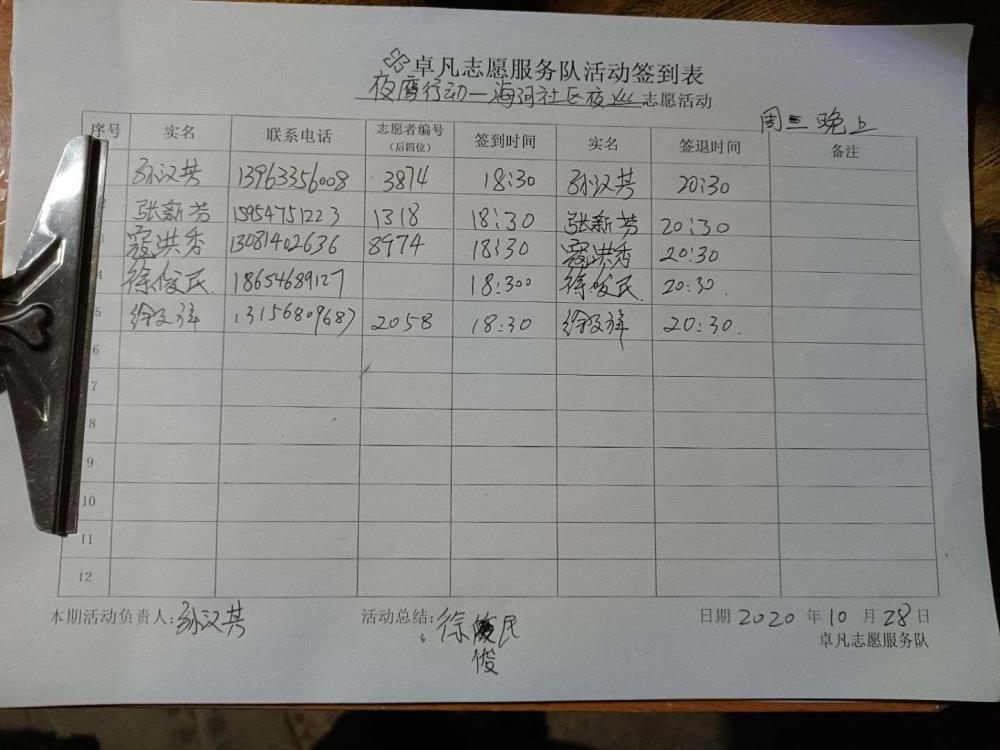 卓凡志愿服务队活动签到表
夜鹰行动—海河社区夜巡 志愿活动
周三晚上
序号 实名 联系电话 志愿者编号（后四位） 签到时间 实名 签退时间 备注
孙汉芹 13963356008 3874 18:30 孙汉芹 20:30
2 张新芳 15954751223 1318 18:30 张新芳 20:30
3 寇洪秀 13081402636 8974 18:30 寇洪秀 20:30
4 徐俊民 18654689127 18:300 徐俊民 20:30
5 13156809687 2058 18:30 20:30
6
7
8
9
10
11
12
本期活动负责人:孙汉芹 活动总结:徐民 日期 2020 年 10 月 28 日
俊
卓凡志愿服务队